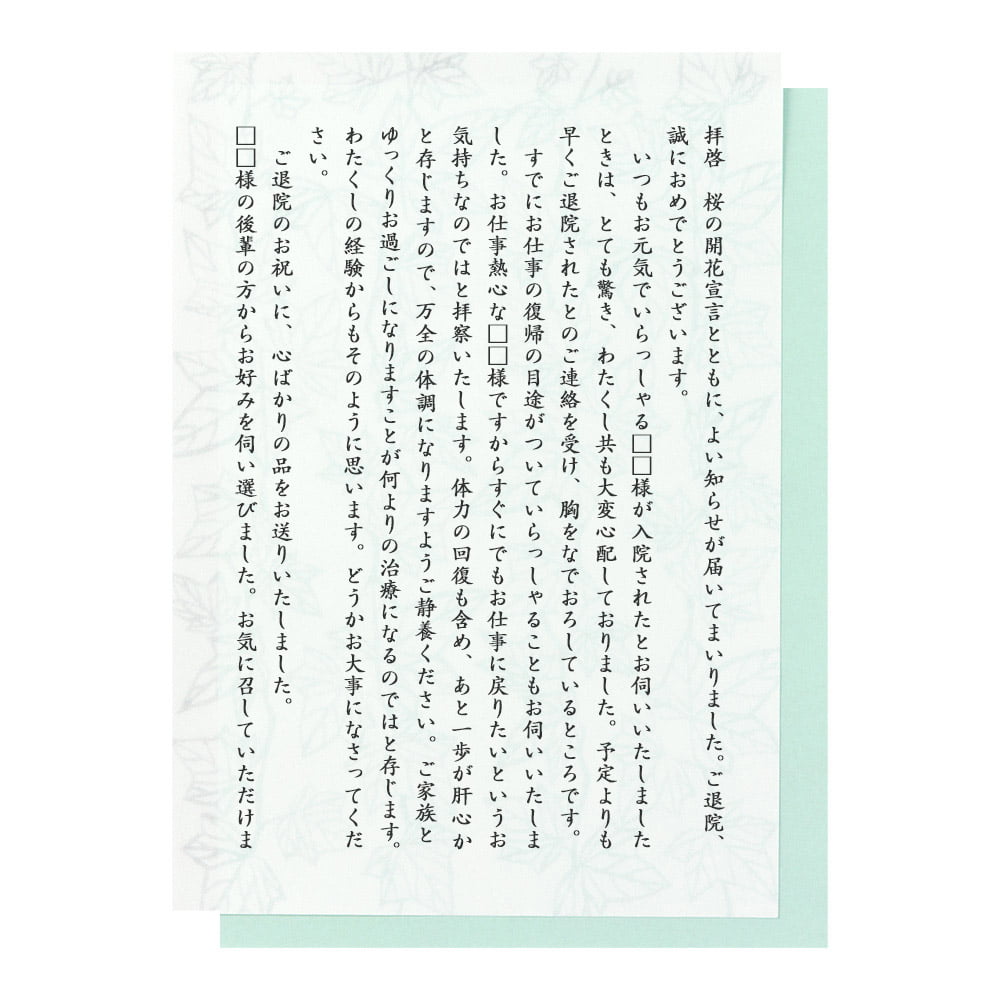 拝啓　桜の開花宣言とともに、よい知らせが届いてまいりました。ご退院、
誠におめでとうございます。
いつもお元気でいらっしゃる□□様が入院されたとお伺いいたしました
ときは、とても驚き、わたくし共も大変心配しておりました。予定よりも
早くご退院されたとのご連絡を受け、胸をなでおろしているところです。
すでにお仕事の復帰の目途がついていらっしゃることもお伺いいたしま
した。お仕事熱心な□□様ですからすぐにでもお仕事に戻りたいというお
気持ちなのではと拝察いたします。体力の回復も含め、あと一歩が肝心か
と存じますので、万全の体調になりますようご静養ください。ご家族と
ゆっくりお過ごしになりますことが何よりの治療になるのではと存じます。
わたくしの経験からもそのように思います。どうかお大事になさってくだ
さい。
ご退院のお祝いに、心ばかりの品をお送りいたしました。
□□様の後輩の方からお好みを伺い選びました。お気に召していただけま